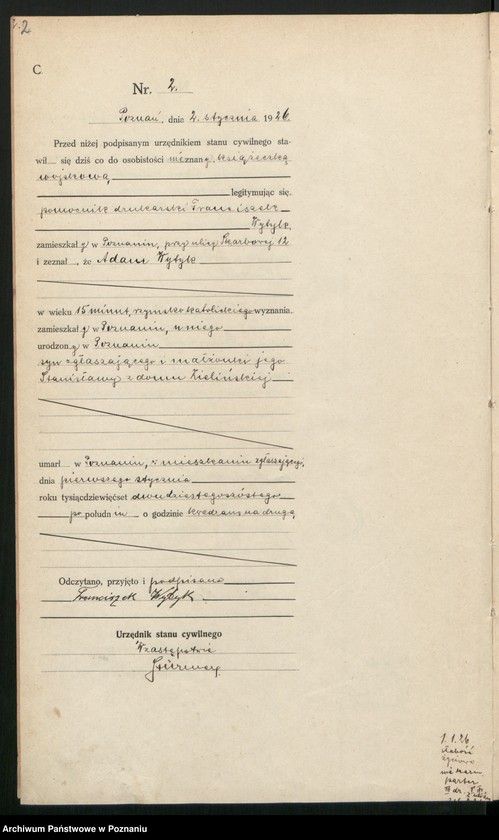 2
C.
Nr. 2.
Poznań, dnia 2. stycznia 1926
Przed niżej podpisanym urzędnikiem stanu cywilnego sta-
wił się dziś co do osobistości nieznany, książeczką
wojskową,
legitymując się.
pomocnik drukarski Franciszek
Wytyk,
zamieszkały w Poznaniu, przy ulicy Skarbowej 12
i zeznał, że Adam Wytyk
w wieku 15 minut, rzymsko katolickiego wyznania.
zamieszkały w Poznaniu, u niego
urodzony w Poznaniu
syn zgłaszającego i małżonki jego
Stanisławy z domu Zielińskiej
umarł w Poznaniu, w mieszkaniu zgłaszającego,
dnia pierwszego stycznia
roku tysiącdziewięćset dwudziestegoszóstego
po południu o godzinie kwadrans na drugą
Odczytano, przyjęto i podpisano
Franciszek Wytyk
Urzędnik stanu cywilnego
W zastępstwie
1.1.26
słabość
Archiwum Państwowe w Poznaniu